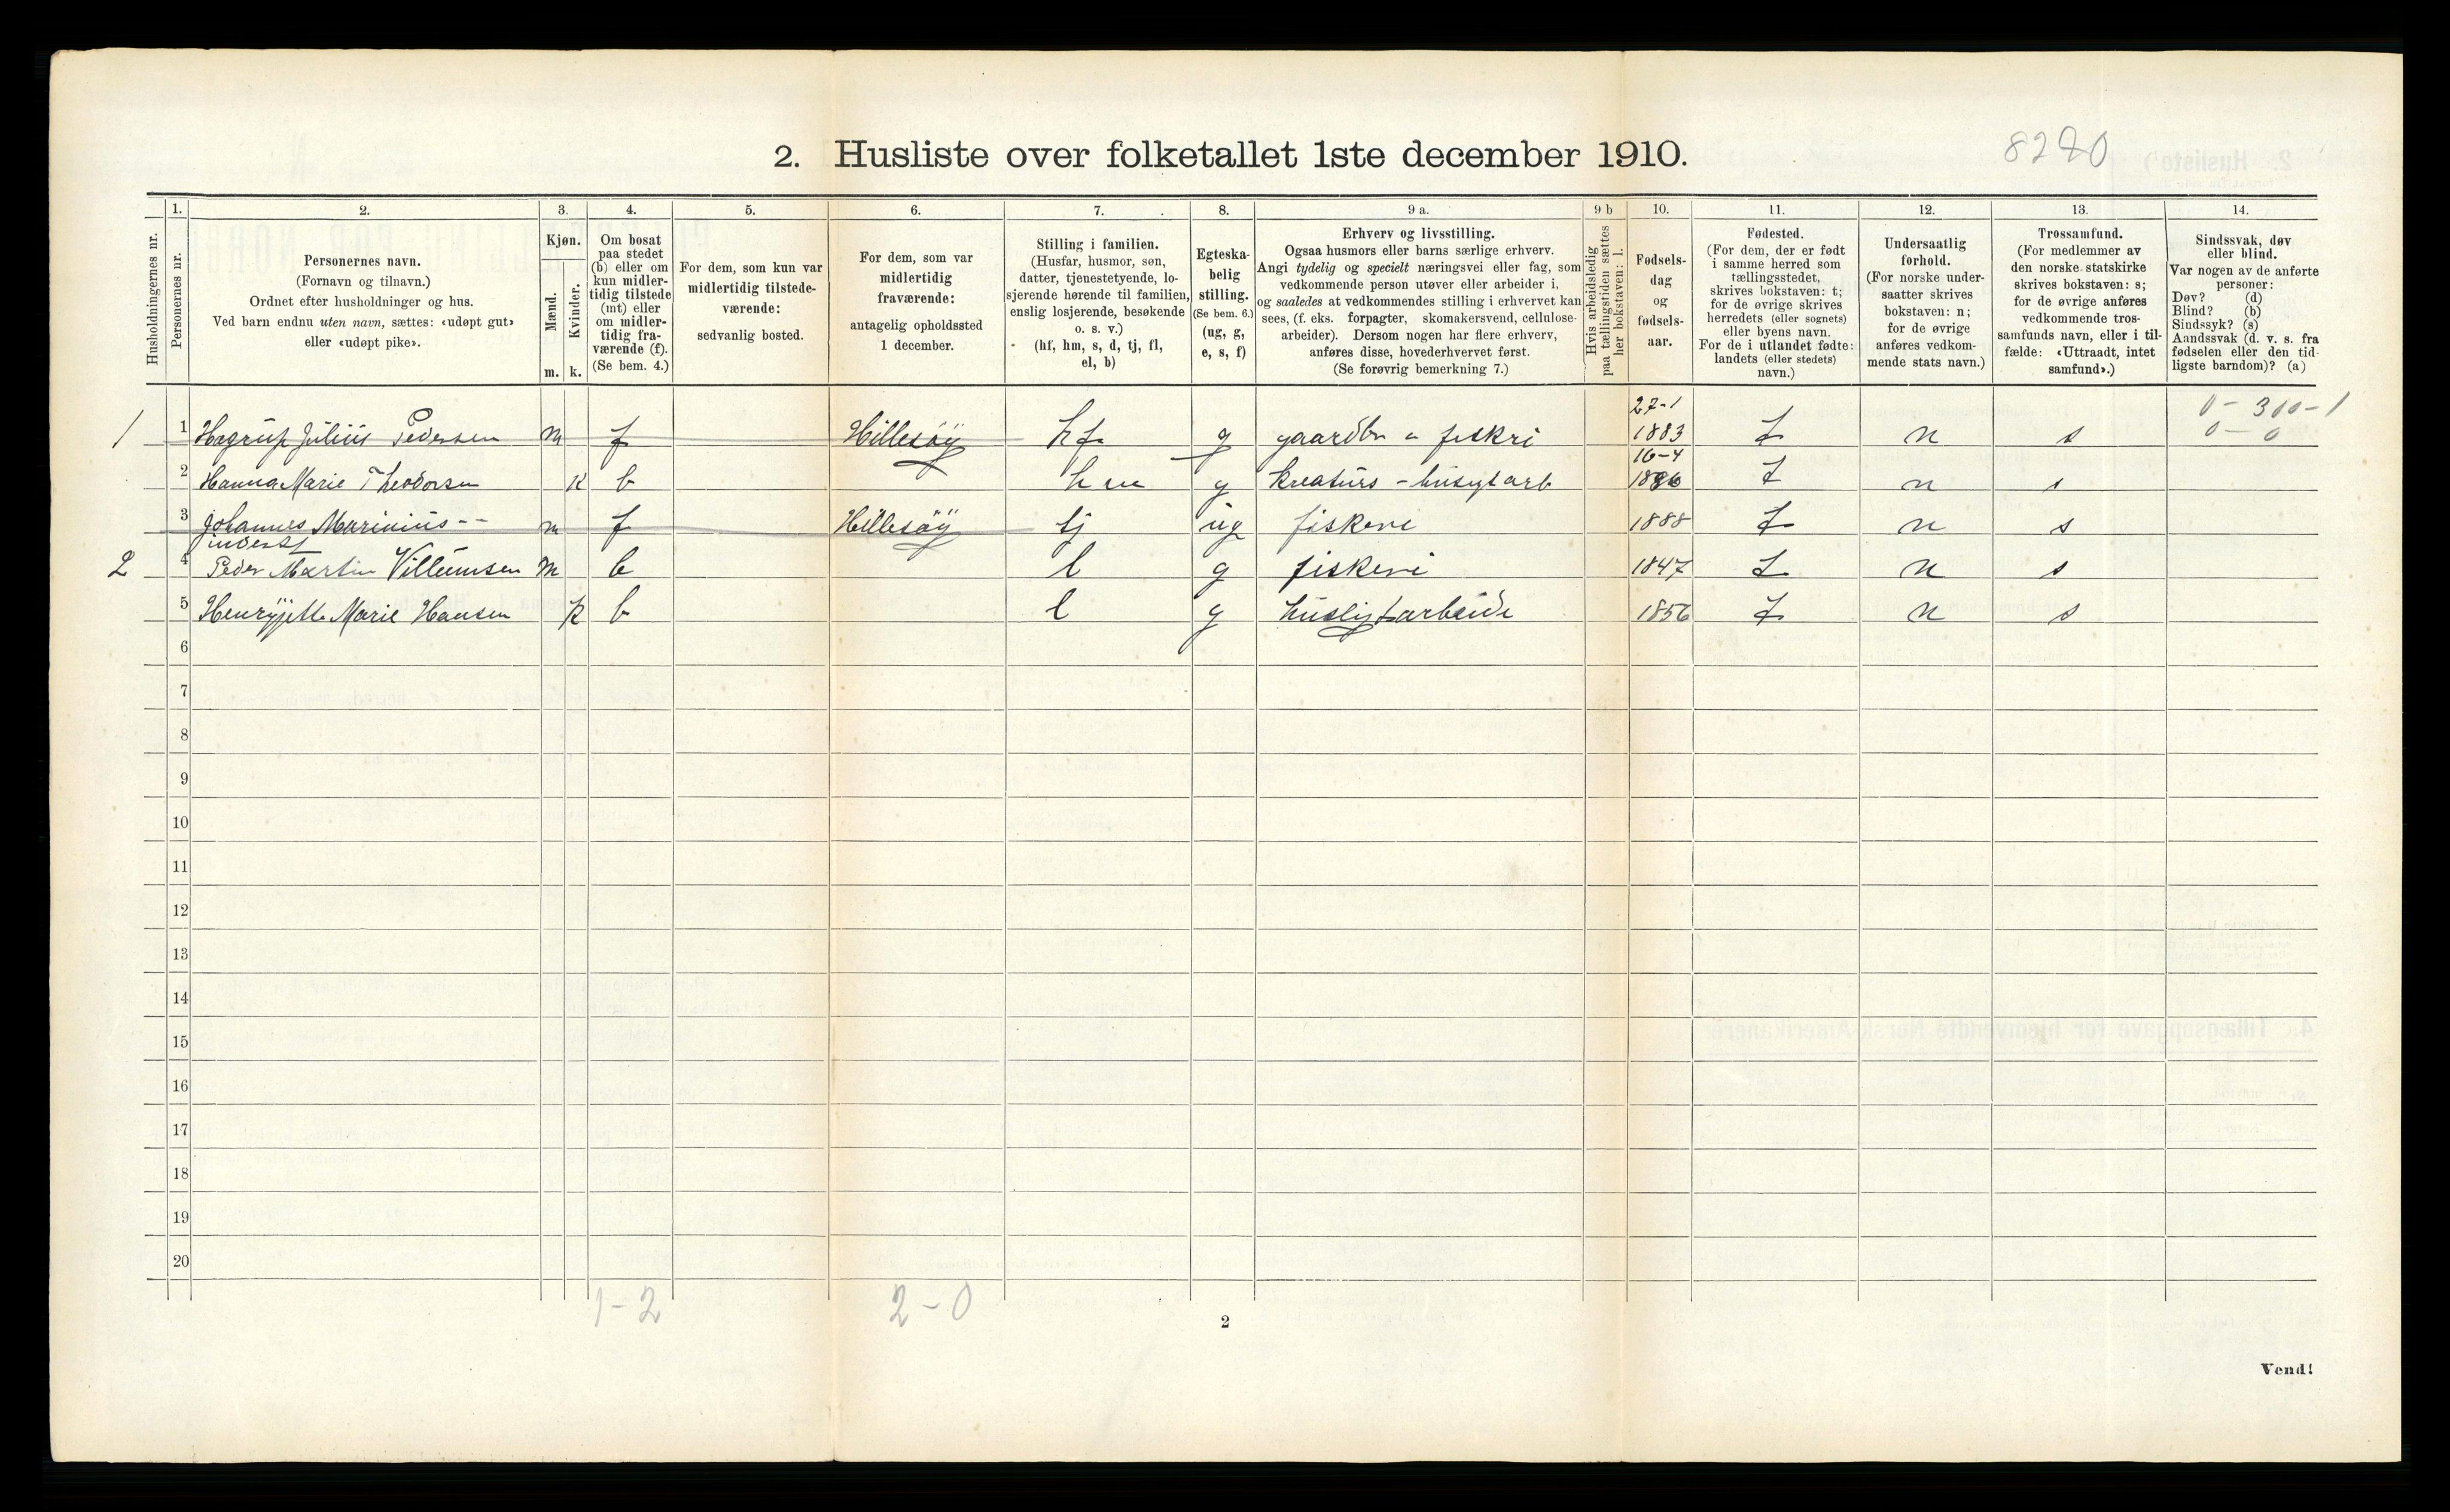 2. Husliste over folketallet 1ste december 1910.
8220
Husholdningernes nr.
1.
Personernes nr.
2.
Personernes navn.
(Fornavn og tilnavn.)
Ordnet efter husholdninger og hus.
Ved barn endnu uten navn, sættes: «udøpt gut»
eller «udøpt pike».
3.
Kjøn.
Mænd.
Kvinder.
m. k.
4.
Om bosat
paa stedet
(b) eller om
kun midler-
tidig tilstede
(mt) eller
om midler-
tidig fra-
værende (f).
(Se bem. 4.)
5.
For dem, som kun var
midlertidig tilstede-
værende:
sedvanlig bosted.
6.
For dem, som var
midlertidig
fraværende:
antagelig opholdssted
1 december.
7.
Stilling i familien.
(Husfar, husmor, søn,
datter, tjenestetyende, lo-
sjerende hørende til familien,
enslig losjerende, besøkende
o. s. v.)
(hf, hm, s, d, tj, fl,
el, b)
8.
Egteska-
belig
stilling.
(Se bem. 6.)
(ug, g,
e, s, f)
9 a.
Erhverv og livsstilling.
Ogsaa husmors eller barns særlige erhverv.
Angi tydelig og specielt næringsvei eller fag, som
vedkommende person utøver eller arbeider i,
og saaledes at vedkommendes stilling i erhvervet kan
sees, (f. eks. forpagter, skomakersvend, cellulose-
arbeider). Dersom nogen har flere erhverv,
anføres disse, hovederhvervet først.
(Se forøvrig bemerkning 7.)
9 b
Hvis arbeidsledig
paa tællingstiden sættes
her bokstaven: l.
10.
Fødsels-
dag
og
fødsels-
aar.
11.
Fødested.
(For dem, der er født
i samme herred som
tællingsstedet,
skrives bokstaven: t;
for de øvrige skrives
herredets (eller sognets)
eller byens navn.
For de i utlandet fødte:
landets (eller stedets)
navn.)
12.
Undersaatlig
forhold.
(For norske under-
saatter skrives
bokstaven: n;
for de øvrige
anføres vedkom-
mende stats navn.)
13.
Trossamfund.
(For medlemmer av
den norske statskirke
skrives bokstaven: s;
for de øvrige anføres
vedkommende tros-
samfunds navn, eller i til-
fælde: «Uttraadt, intet
samfund».)
14.
Sindssvak, døv
eller blind.
Var nogen av de anførte
personer:
Døv? (d)
Blind? (b)
Sindssyk? (s)
Aandssvak (d. v. s. fra
fødselen eller den tid-
ligste barndom)? (a)
0 - 300 - 1
0 - 0
1 1 Hagrup Julius Pedersen m f Hillesøy hf g gaardbr fiskri 27-1 1883 t n s
2 Hanna Marie Theodorsen k b hm g kreaturs - husligt arb 16-4 1886 t n s
3 Johannes Marinius -- m f Hillesøy tj ug fiskeri 1888 t n s
inderst
2 4 Peder Martin Villumsen m b l g fiskeri 1847 t n s
5 Henryjette Marie Hansen k b l g husligt arbeide 1856 t n s
6
7
8
9
10
11
12
13
14
15
16
17
18
19
20
1 - 2
2 - 0
2
Vend!